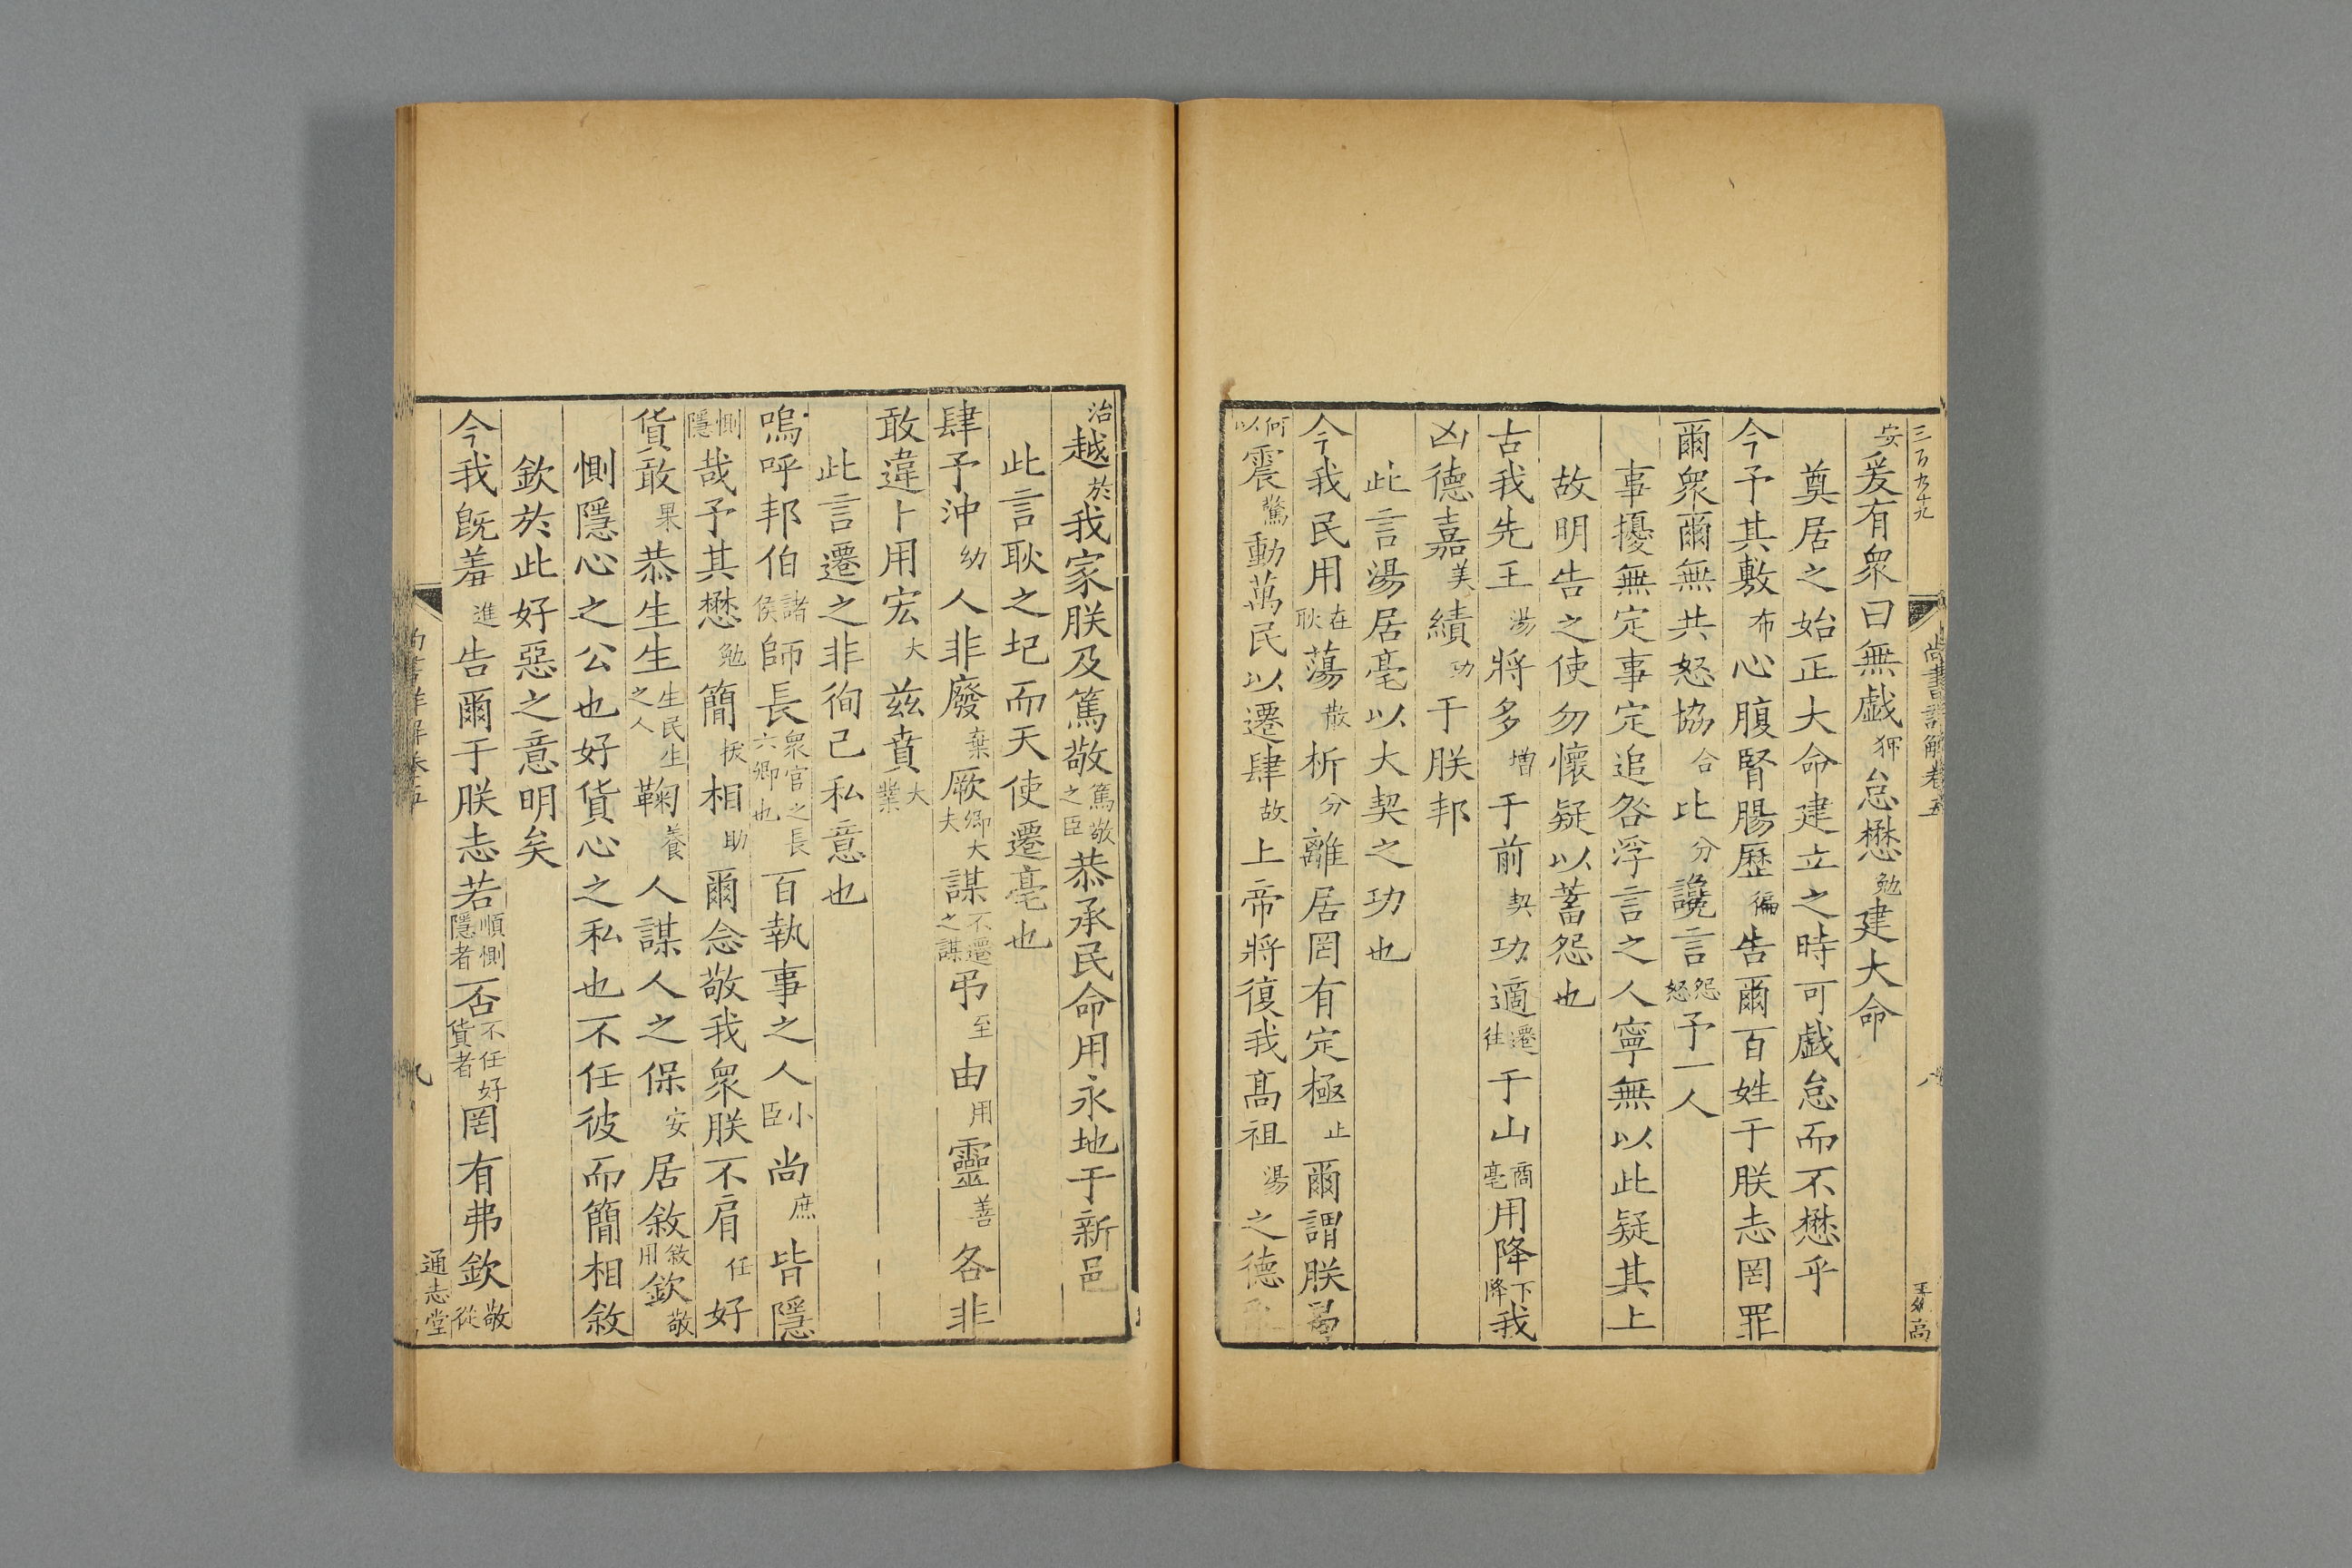 三百九十九
尚書詳解卷五
八
安爰有衆曰無戯狎怠懋勉建大命
奠居之始正大命建立之時可戯怠而不懋乎
今予其敷布心腹腎腸歷徧告爾百姓于朕志罔罪
爾衆爾無共怒協合比分讒言怨怒予一人
事擾無定事定追咎浮言之人寧無以此疑其上
故明告之使勿懷疑以蓄怨也
古我先王湯將多増于前契功適遷往于山商亳用降下降我
凶德嘉美績功于朕邦
此言湯居亳以大契之功也
今我民用在耿蕩散析分離居罔有定極止爾謂朕曷
何以震驚動萬民以遷肆故上帝將復我高祖湯之德
治越於我家朕及篤敬篤敬之臣恭承民命用永地于新邑
此言耿之圮而天使遷亳也
肆予沖幼人非廢棄厥卿大夫謀不遷之謀弔至由用靈善各非
敢違卜用宏大兹賁大業
此言遷之非徇己私意也
嗚呼邦伯諸侯師長衆官之長六卿也百執事之人小臣尚庶皆隱
惻隱哉予其懋勉簡扶相助爾念敬我衆朕不肩任好
貨敢果恭生生生民生之人鞠養人謀人之保安居敘敘用欽敬
惻隱心之公也好貨心之私也不任彼而簡相敘
欽於此好惡之意明矣
今我旣羞進告爾于朕志若順惻隱者否不任好貨者罔有弗欽敬從
九
通志堂